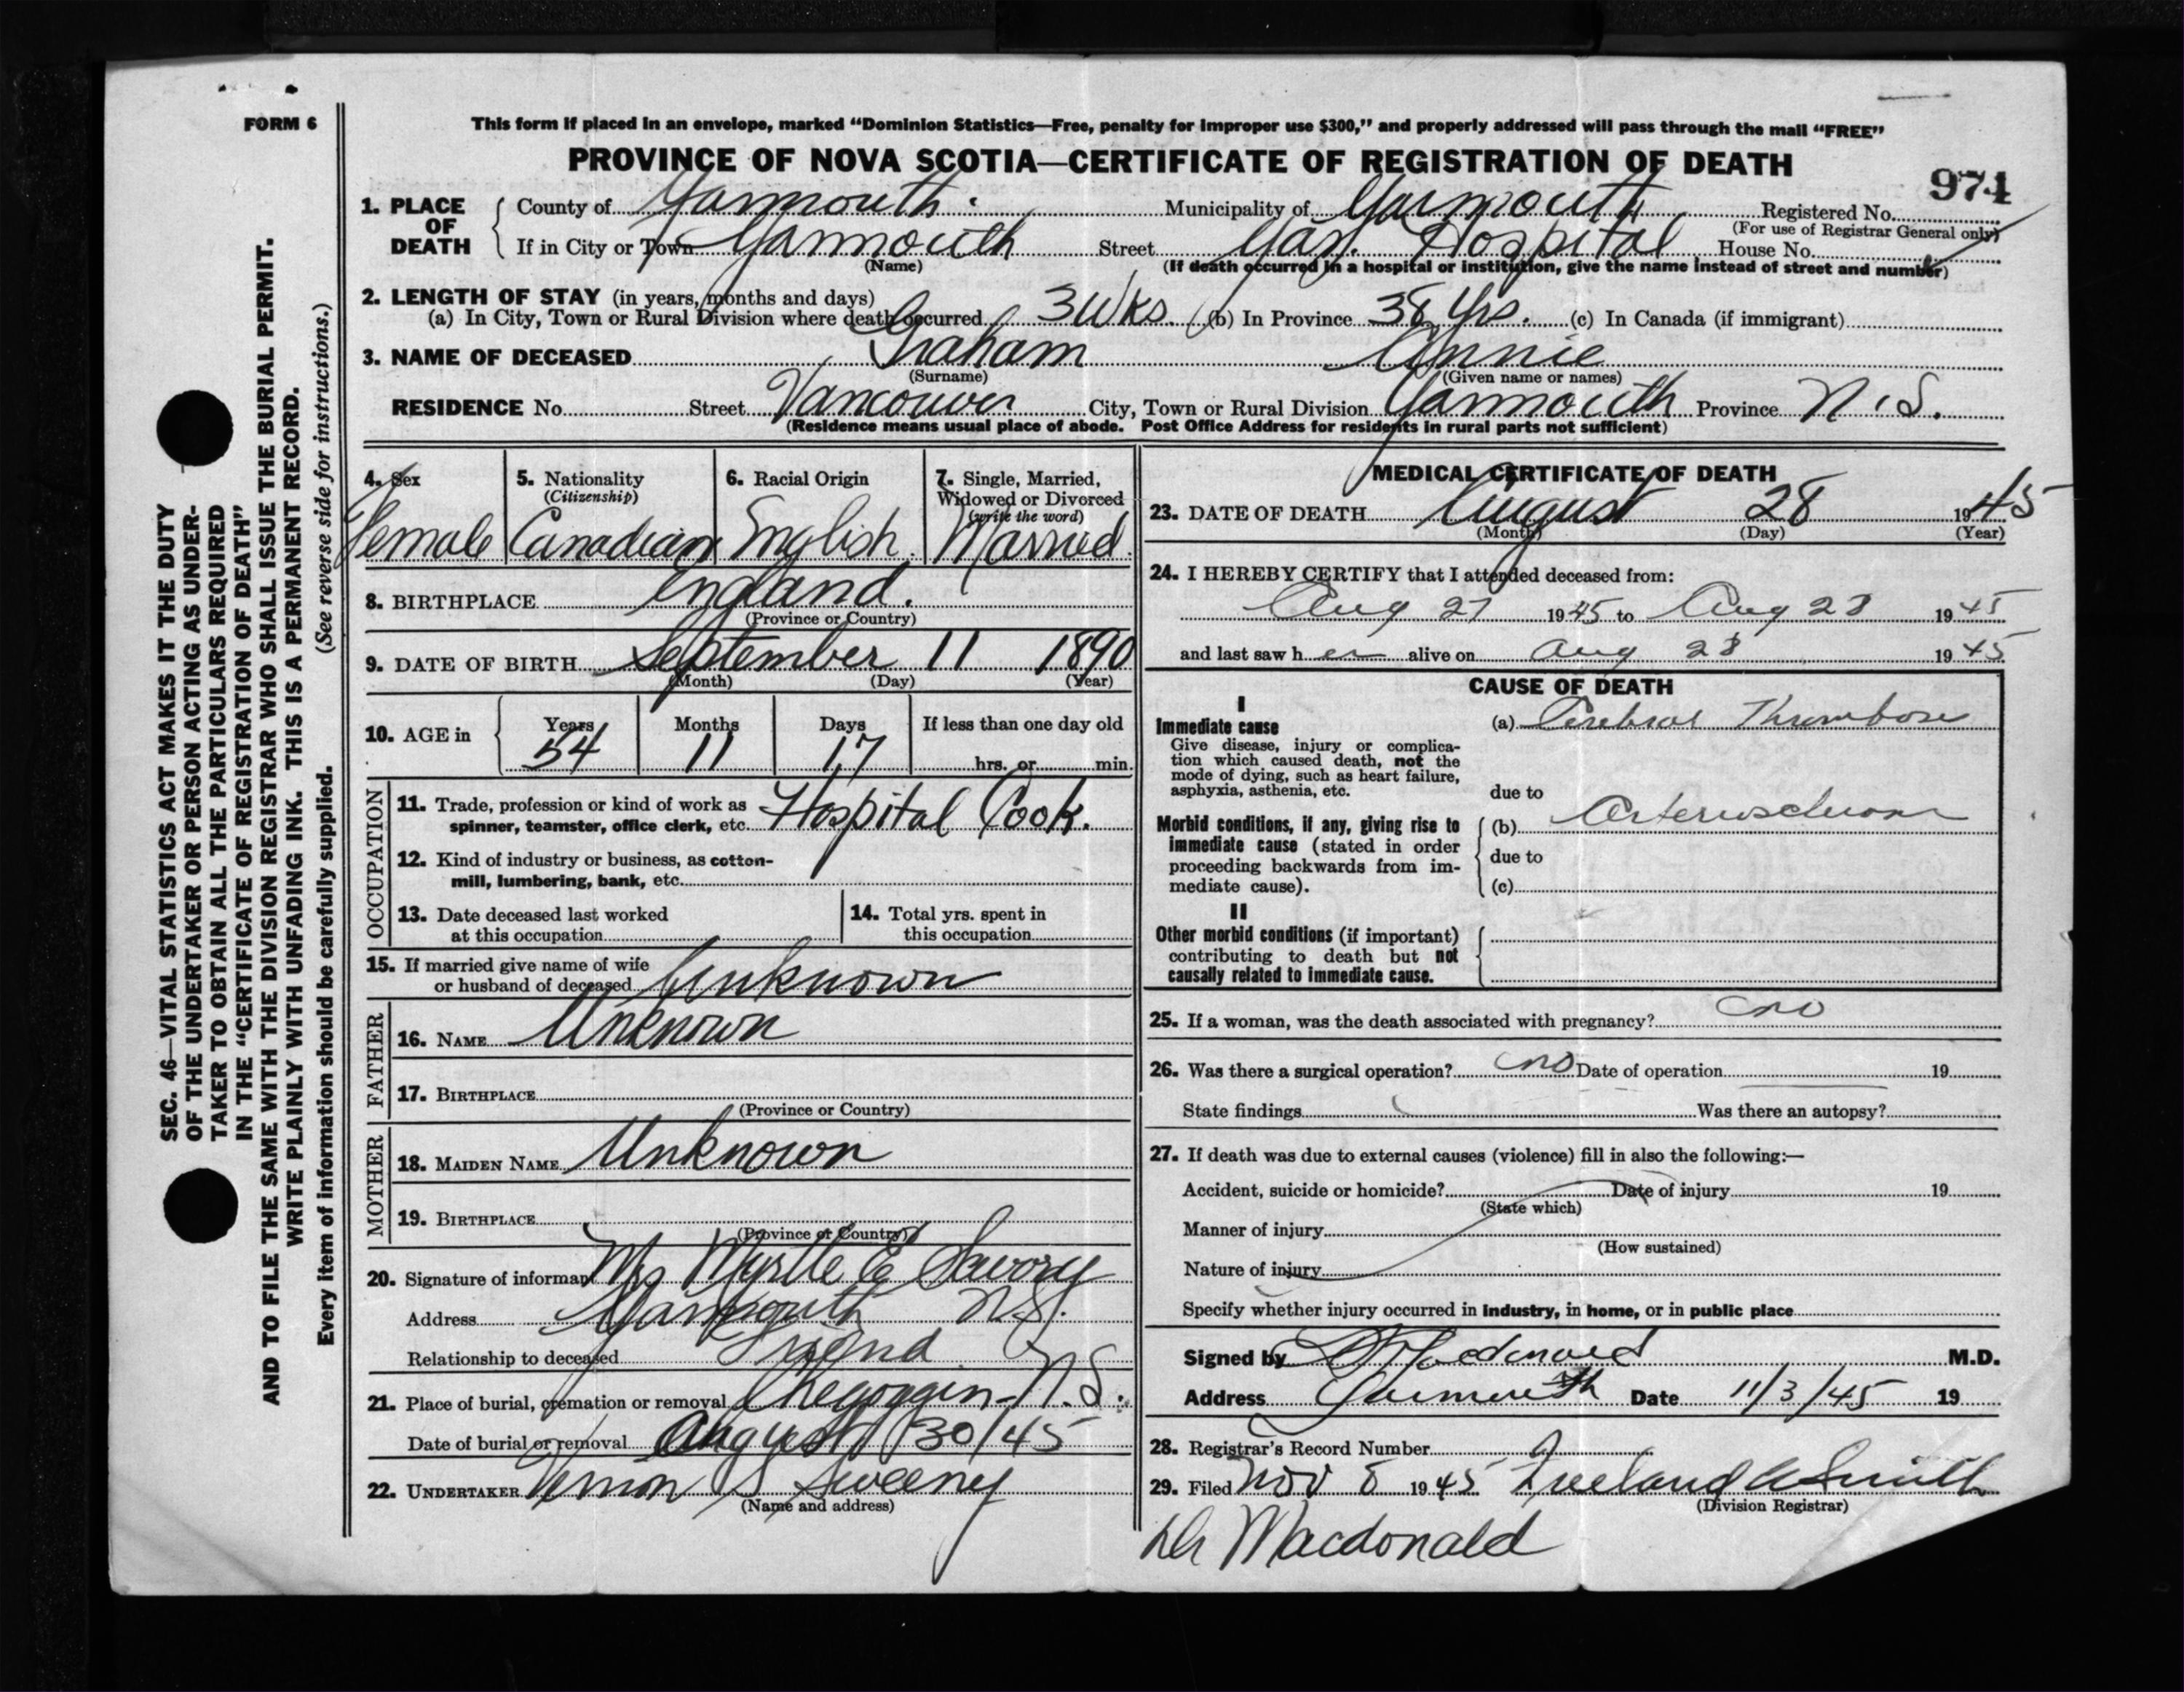 FORM 6
This form if placed in an envelope, marked “Dominion Statistics—Free, penalty for improper use $300,” and properly addressed will pass through the mail “FREE”
PROVINCE OF NOVA SCOTIA—CERTIFICATE OF REGISTRATION OF DEATH
974
1. PLACE OF DEATH County of Yarmouth Municipality of Yarmouth Registered No.
(For use of Registrar General only)
If in City or Town Yarmouth Street Yar. Hospital House No.
(Name) (If death occurred in a hospital or institution, give the name instead of street and number)
2. LENGTH OF STAY (in years, months and days)
(a) In City, Town or Rural Division where death occurred 3 Wks. (b) In Province 38 Yrs. (c) In Canada (if immigrant)
3. NAME OF DECEASED Graham Annie
(Surname) (Given name or names)
RESIDENCE No. Street Vancouver City, Town or Rural Division Yarmouth Province N.S.
(Residence means usual place of abode. Post Office Address for residents in rural parts not sufficient)
4. Sex 5. Nationality 6. Racial Origin 7. Single, Married,
(Citizenship) Widowed or Divorced
(write the word)
Female Canadian English. Married.
8. BIRTHPLACE England.
(Province or Country)
9. DATE OF BIRTH September 11 1890
(Month) (Day) (Year)
10. AGE in Years Months Days If less than one day old
54 11 17 hrs. or min.
OCCUPATION
11. Trade, profession or kind of work as
spinner, teamster, office clerk, etc. Hospital Cook.
12. Kind of industry or business, as cotton-
mill, lumbering, bank, etc.
13. Date deceased last worked 14. Total yrs. spent in
at this occupation this occupation
15. If married give name of wife
or husband of deceased Unknown
FATHER
16. NAME Unknown
17. BIRTHPLACE
(Province or Country)
MOTHER
18. MAIDEN NAME Unknown
19. BIRTHPLACE
(Province or Country)
20. Signature of informant Mrs Myrtle E Savory
Address Yarmouth N.S.
Relationship to deceased Friend.
21. Place of burial, cremation or removal Chegoggin - N.S.
Date of burial or removal August 30/45
22. UNDERTAKER Vernon S Sweeny
(Name and address)
MEDICAL CERTIFICATE OF DEATH
23. DATE OF DEATH August 28 1945
(Month) (Day) (Year)
24. I HEREBY CERTIFY that I attended deceased from:
Aug 27 1945 to Aug 28 1945
and last saw her alive on Aug 28 1945
CAUSE OF DEATH
I
Immediate cause (a) Cerebral Thrombosis
Give disease, injury or complica-
tion which caused death, not the
mode of dying, such as heart failure,
asphyxia, asthenia, etc. due to
Morbid conditions, if any, giving rise to (b) Arteriosclerosis
immediate cause (stated in order
proceeding backwards from im- due to
mediate cause). (c)
II
Other morbid conditions (if important)
contributing to death but not
causally related to immediate cause.
25. If a woman, was the death associated with pregnancy? no
26. Was there a surgical operation? no Date of operation 19
State findings Was there an autopsy?
27. If death was due to external causes (violence) fill in also the following:—
Accident, suicide or homicide? Date of injury 19
(State which)
Manner of injury
(How sustained)
Nature of injury
Specify whether injury occurred in industry, in home, or in public place
Signed by Macdonald M.D.
Address Yarmouth Date 11/3/45 19
28. Registrar's Record Number
29. Filed Nov 8 1945 Freeland A Smith
(Division Registrar)
Dr Macdonald
SEC. 46—VITAL STATISTICS ACT MAKES IT THE DUTY
OF THE UNDERTAKER OR PERSON ACTING AS UNDER-
TAKER TO OBTAIN ALL THE PARTICULARS REQUIRED
IN THE “CERTIFICATE OF REGISTRATION OF DEATH”
AND TO FILE THE SAME WITH THE DIVISION REGISTRAR WHO SHALL ISSUE THE BURIAL PERMIT.
WRITE PLAINLY WITH UNFADING INK. THIS IS A PERMANENT RECORD.
Every item of information should be carefully supplied. (See reverse side for instructions.)